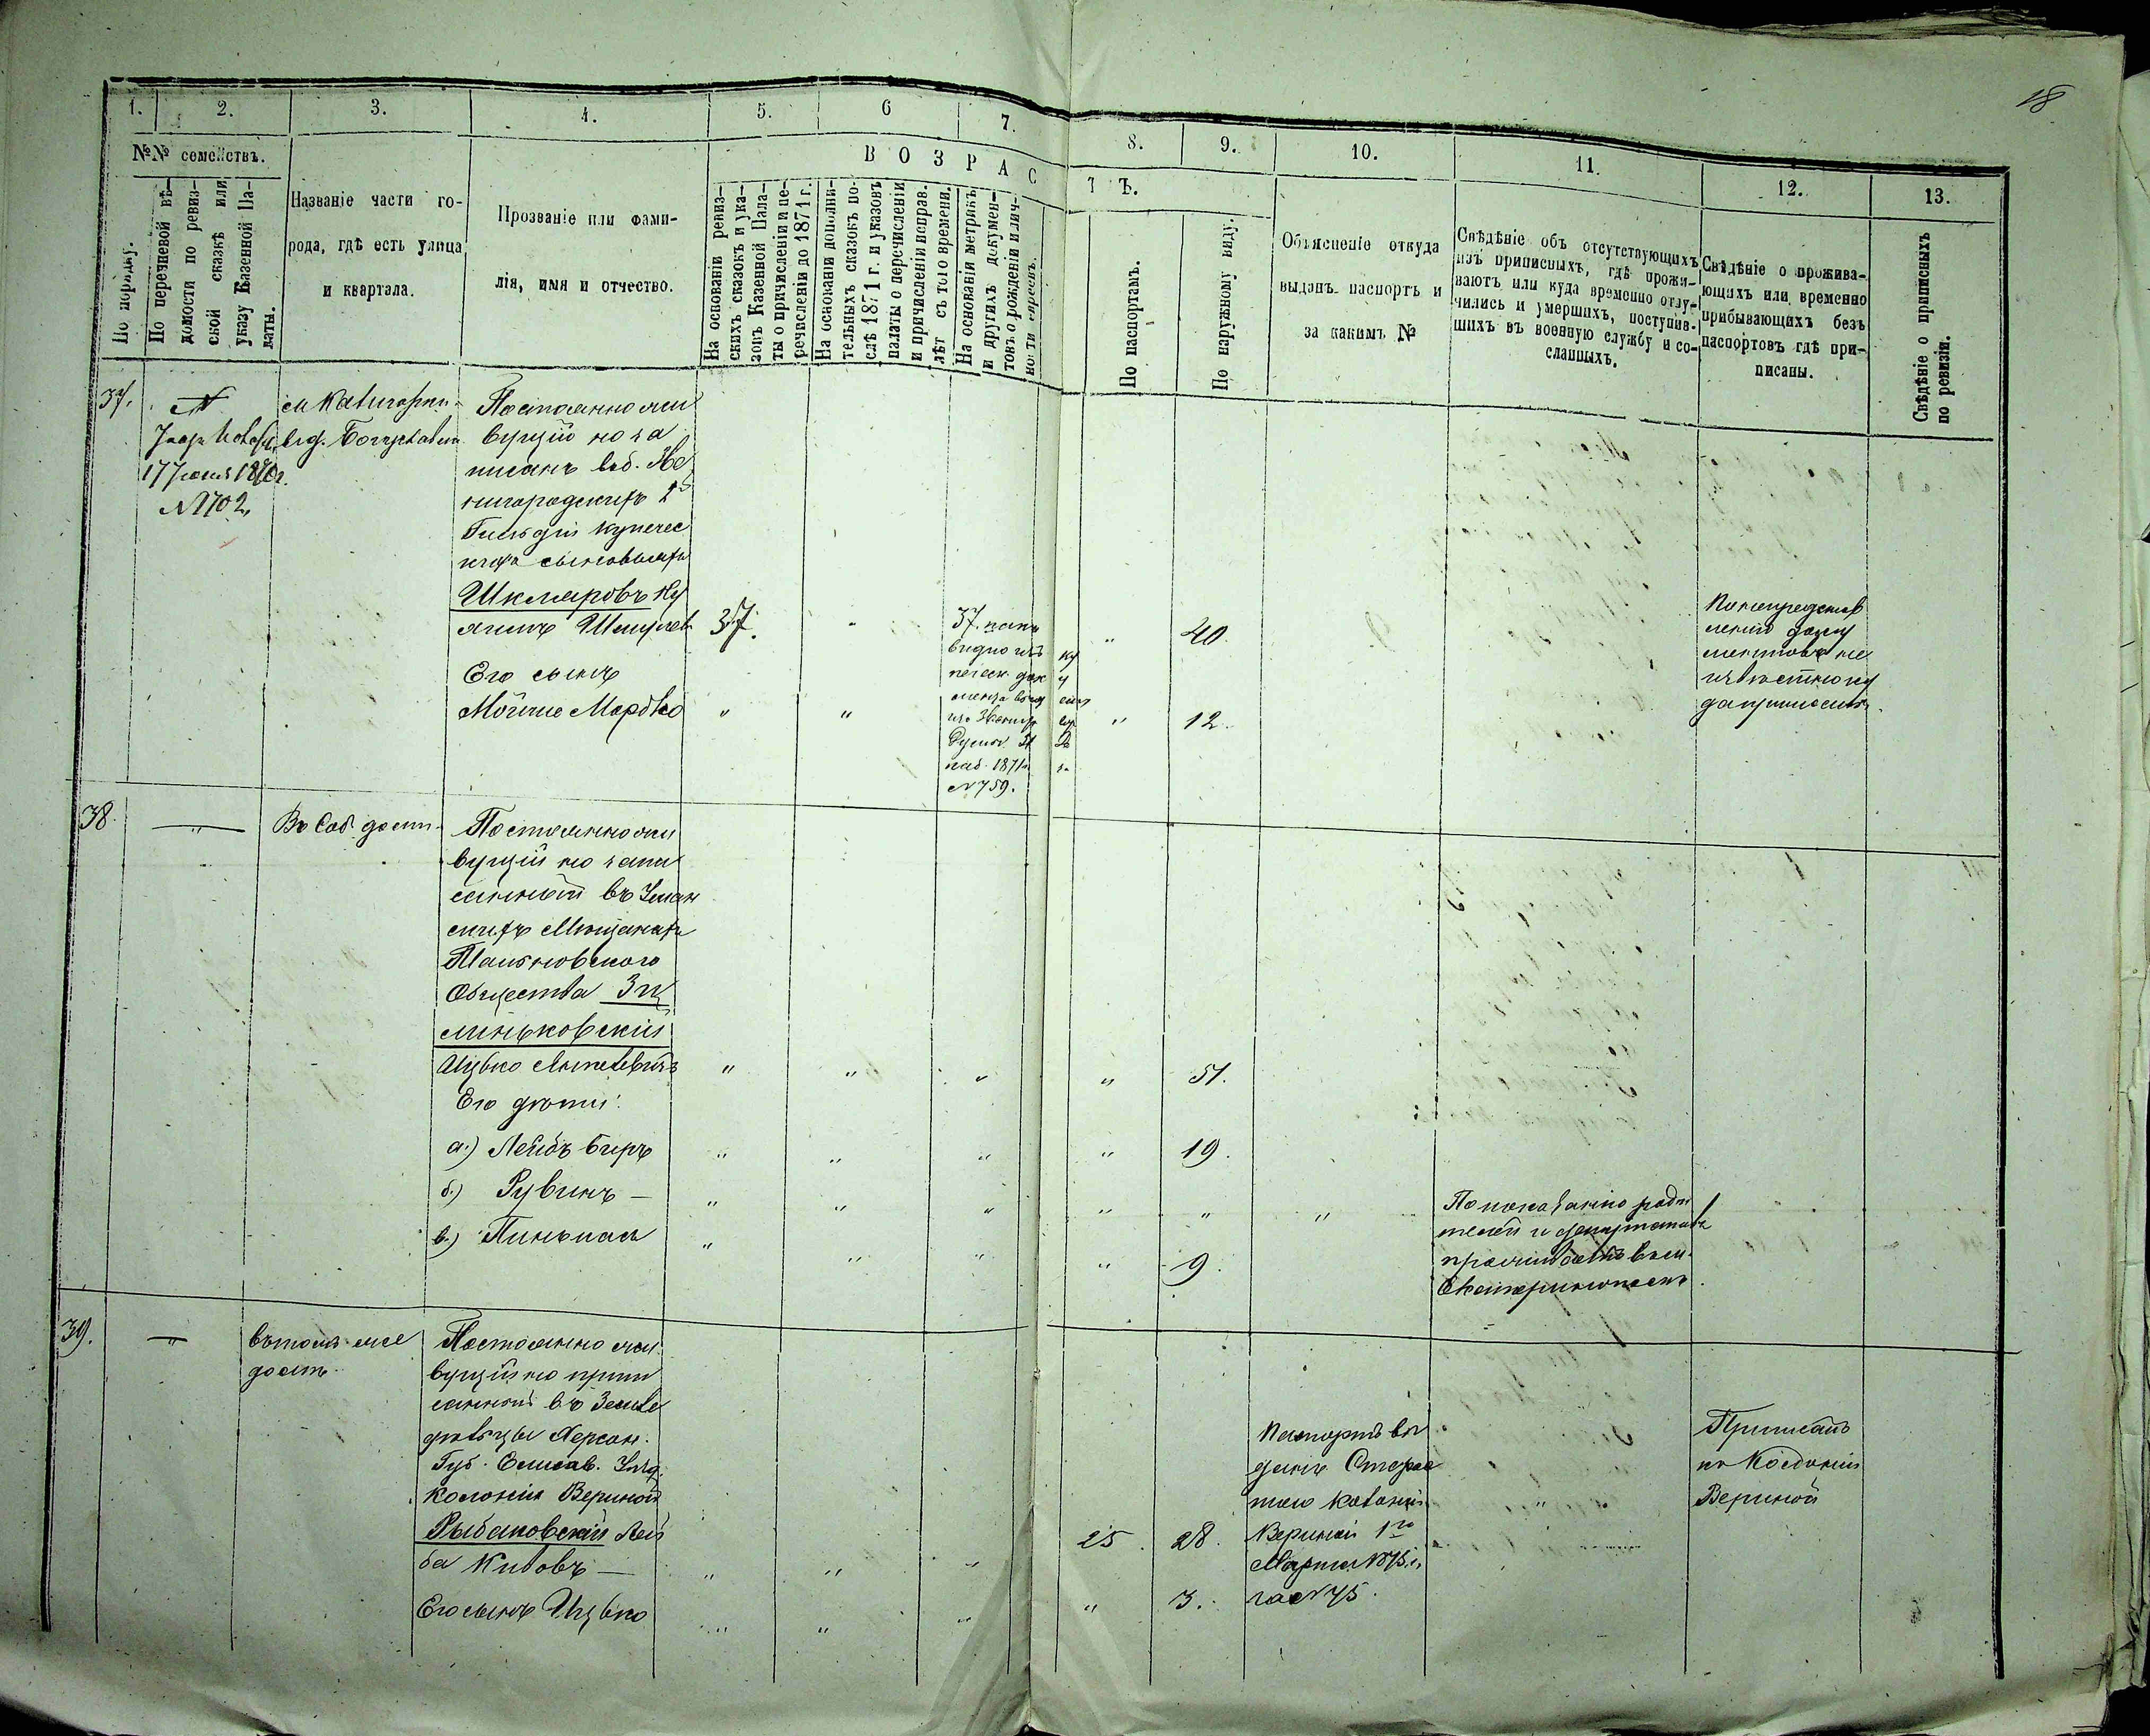 18
1. 2. 3. 4. 5. 6 7. 8. 9. 10. 11. 12. 13.
№№ семействъ.
По порядку.
По перечневой вѣ-
домости по ревиз-
ской сказкѣ или
указу Казенной Па-
латы.
Названіе части го-
рода, гдѣ есть улица
и квартала.
Прозваніе или фами-
лія, имя и отчество.
ВОЗРАСТЪ.
На основаніи ревиз-
скихъ сказокъ и ука-
зовъ Казенной Пала-
ты о причисленіи и пе-
речисленіи до 1871 г.
На основаніи дополни-
тельныхъ сказокъ по-
слѣ 1871 г. и указовъ
палаты о перечисленіи
и причисленіи исправ.
лѣт съ того времени.
На основаніи метрикъ
и другихъ докумен-
товъ о рожденіи и лич-
ности евреевъ.
По паспортамъ.
По наружному виду.
Объясненіе откуда
выданъ паспортъ и
за какимъ №
Свѣдѣніе объ отсутствующихъ
изъ приписныхъ, гдѣ прожи-
ваютъ или куда временно отлу-
чились и умершихъ, поступив-
шихъ въ военную службу и со-
сланныхъ.
Свѣдѣніе о прожива-
ющихъ или временно
прибывающихъ безъ
паспортовъ гдѣ при-
писаны.
Свѣдѣніе о приписныхъ
по ревизіи.
37.
№
17
№ 1702,
Постоянно жи
вущій но за
писанъ
нигородскихъ 2й
Гильдіи купечес
кихъ сыновьяхъ
Шкляровъ
37.
37.
видно изъ
1871 г.
№ 759.
40.
Его сынъ
Мойше Мордко
" " " 12.
38.
"
Въ
Постоянно жи
вущій но запи
санный въ Уман
скихъ Мѣщанахъ
Тальновскаго
Общества
линьковскій
Ицько
" " " " 51.
Его дѣти:
а.) Лейбъ Беръ
" " " " 19.
б.) Рувинъ —
" " " " " "
По показанію роди
телей и депутатовъ
проживаетъ въ м.
Екатеринополѣ.
в.) Пинькасъ
" " " " 9.
39.
"
въ томъ же
домѣ
Постоянно жи
вущій но припи
санный въ Земле
дѣльцы Херсон.
Губ. Елисав. Уѣзд.
Колоніи Верикой
Рыбаковскій Лей
ба Кивовъ —
" " " 25. 28.
Паспортъ вы
данъ
Марта 1875 г.
за № 75.
"
Приписанъ
къ Колоніи
Верикой
Его сынъ Ицько
" " " " 3.